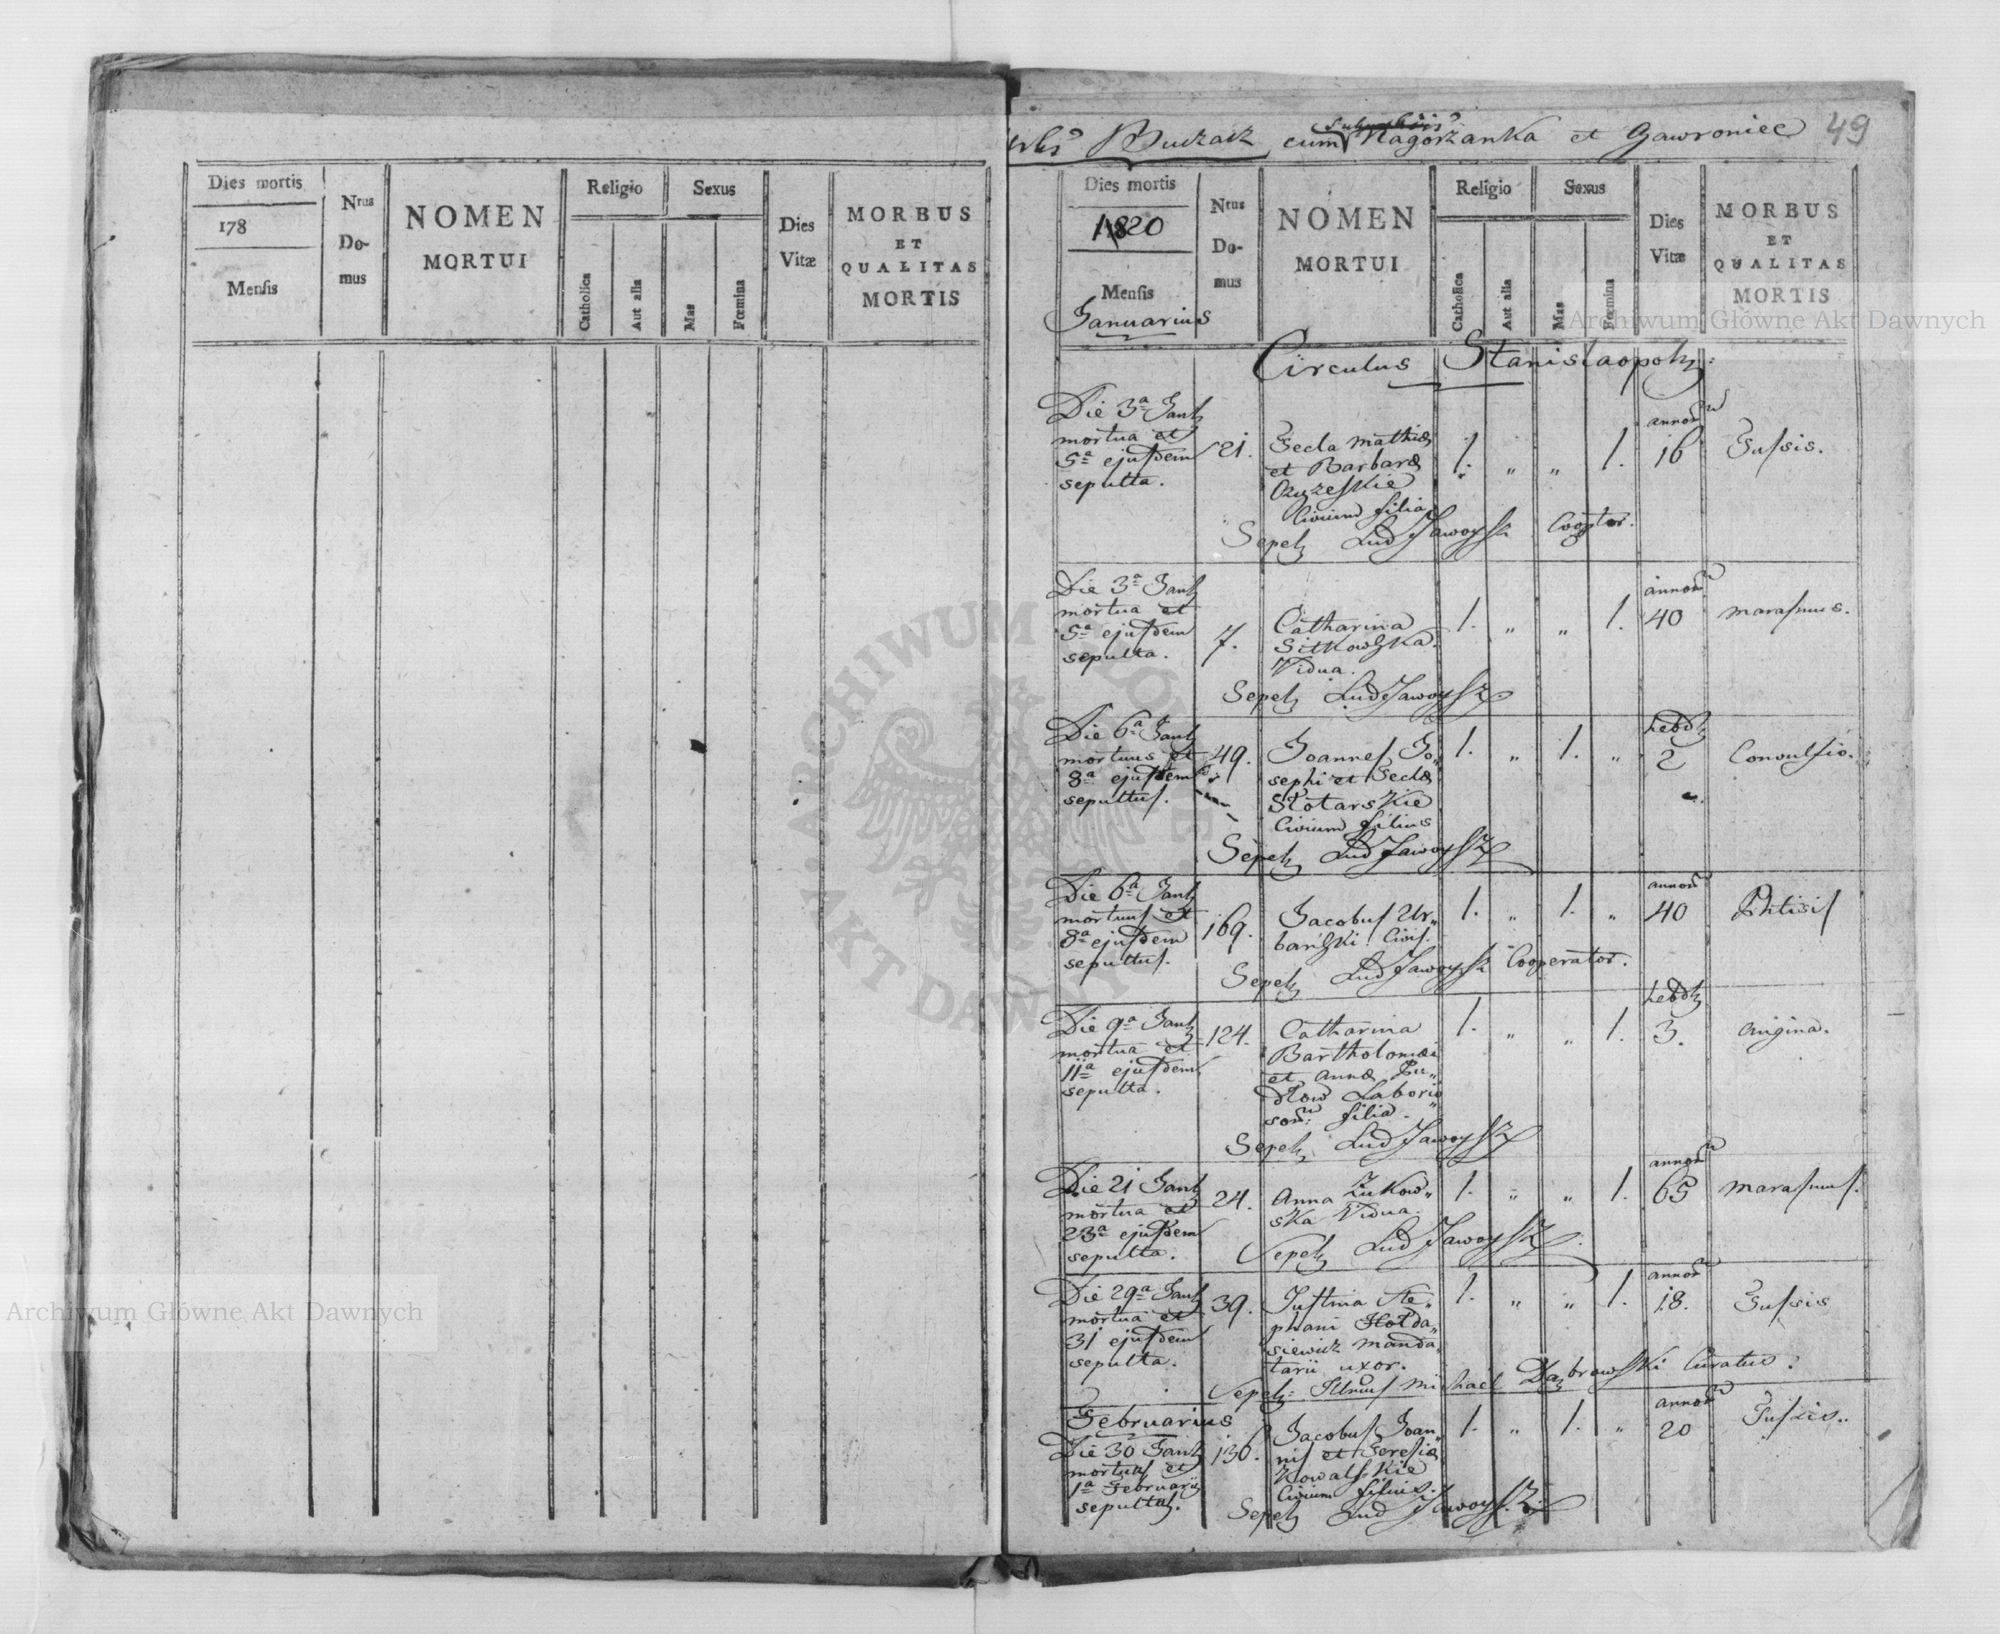 Dies mortis
178
Mensis
Nrus
Do-
mus
NOMEN
MORTUI
Religio
Catholica
Aut alia
Sexus
Mas
Fœmina
Dies
Vitæ
MORBUS
ET
QUALITAS
MORTIS
Buczacz cum Nagorzanka et Gawroniec 49
Dies mortis
1820
Mensis
Januarius
Nrus
Do-
mus
NOMEN
MORTUI
Religio
Catholica
Aut alia
Sexus
Mas
Fœmina
Dies
Vitæ
MORBUS
ET
QUALITAS
MORTIS
Circulus Stanislaopol:
Die 3a Jan
mortua et
5a ejusdem
sepulta.
21.
Tecla Mathiæ
et Barbaræ
Civium filia
1. " " 1.
annor
16
Tussis.
Sepel Lud Jawoysz Cooptor.
Die 3a Jan
mortua et
5a ejusdem
sepulta.
7.
Catharina
Sitkowska.
Vidua.
1. " " 1.
annor
40
marasmus.
Sepel Lud Jawoysz
Die 6a Jan
mortuus et
8a ejusdem
sepultus.
49.
Joannes Jo„
sephi et Teclæ
Stotarskie
Civium filius
1. " 1. "
hebd
2
Convulsio.
Sepel Lud Jawoysz
Die 6a Jan
mortuus et
8a ejusdem
sepultus.
169.
Jacobus Ur„
bański Civis.
1. " 1. "
annor
40
Phtisis
Sepel Lud Jawoysz Cooperator.
Die 9a Jan
mortua et
11a ejusdem
sepulta.
124.
Catharina
Bartholomæi
et Annæ
Laborio„
sor: filia.
1. " " 1.
hebd
3.
Angina.
Sepel Lud Jawoysz
Die 21 Jan
mortua et
23a ejusdem
sepulta.
24.
Anna Zukow„
ska Vidua.
1. " " 1.
annor
65
Marasmus.
Sepel Lud Jawoysz
Die 29a Jan
mortua et
31 ejusdem
sepulta.
39.
Justina Ste„
phani Hołda„
siewicz manda„
tarii uxor.
1. " " 1.
annor
18.
Tussis
Sepel: Illmus Michael Dąbrowski Curatus.
Februarius
Die 30 Jan
mortuus et
1a Februarii
sepultus.
136.
Jacobus Joan„
nis et Teresiæ
Kowalskie
Civium filius.
1. " 1. "
annor
20
Tussis.
Sepel Lud Jawoysz
Archiwum Główne Akt Dawnych
Archiwum Główne Akt Dawnych
ARCHIWUM GŁÓWNE
AKT DAWNYCH